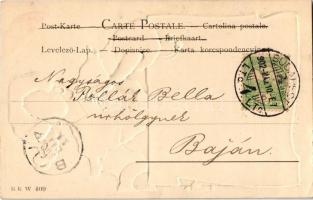 Post-Karte CARTE POSTALE. Cartolina postale.
Postcard Briefkaart.
Levelező-Lap. Dopisnice. Karta korespondencyjna
Nagyságos
Pollák Bella
úrhölgynek
Baján.
B R W 409